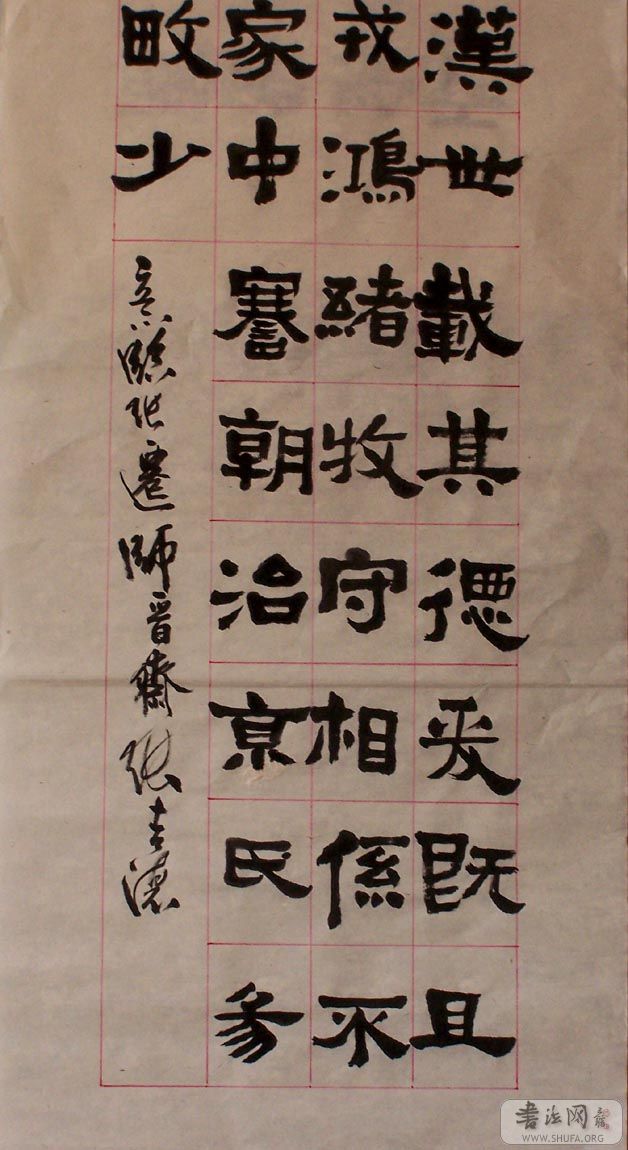 漢世載其德爰既且
戎鴻緒牧守相係不
家中謇朝治京氏易
畋少
意臨張遷師晉齋張
書法网
WWW.SHUFA.ORG